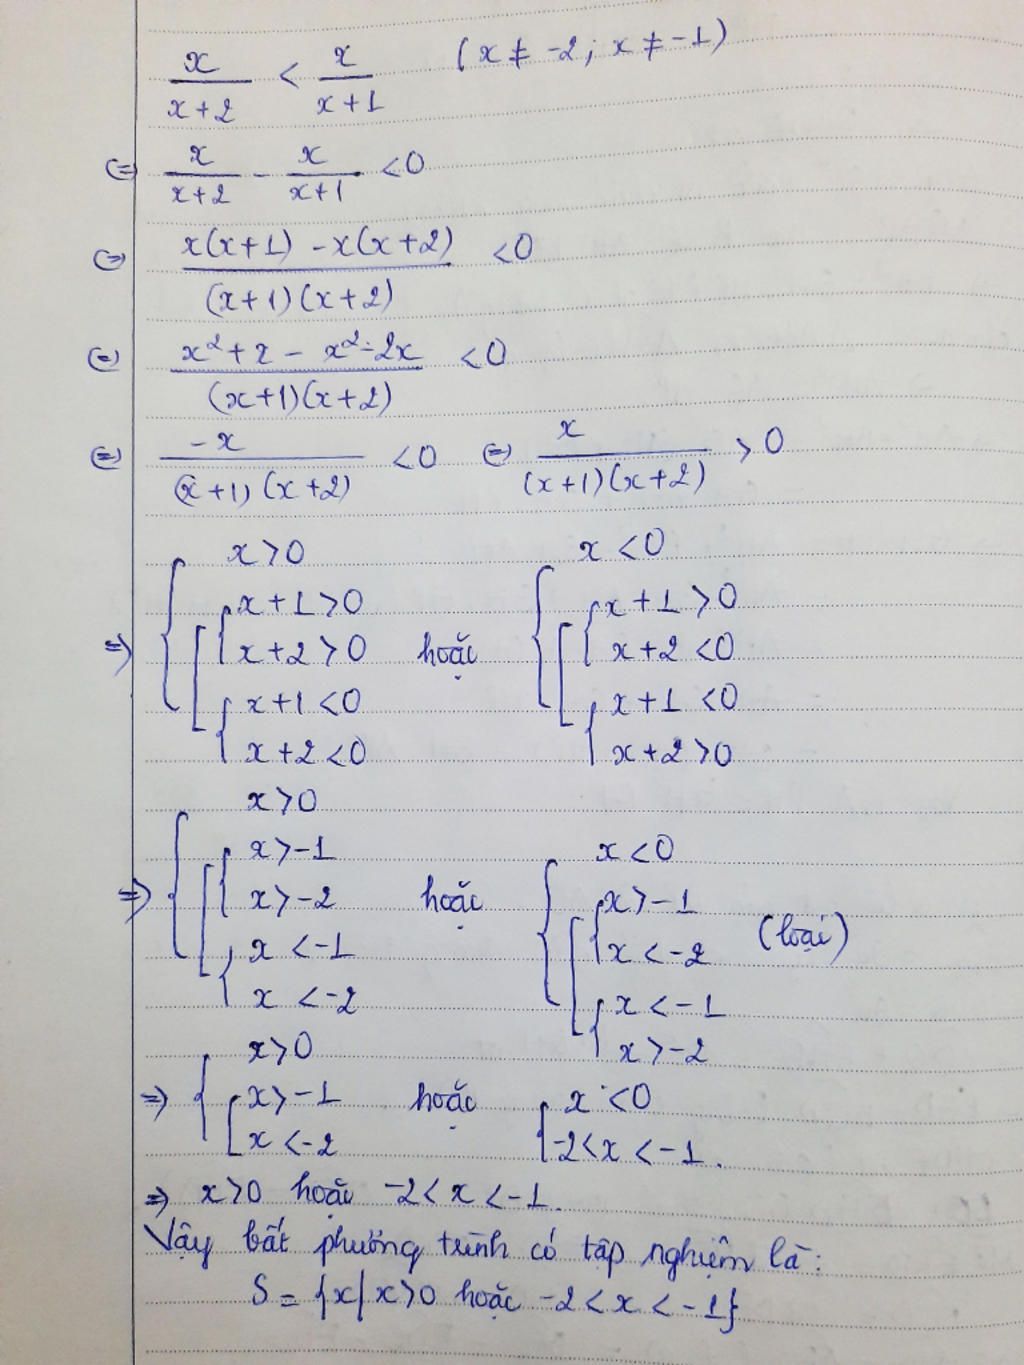 x/(x+2) < x/(x+1) (x ≠ -2; x ≠ -1)
(=) x/(x+2) - x/(x+1) < 0
(=) (x(x+1) - x(x+2))/((x+1)(x+2)) < 0
(=) (x² + x - x² - 2x)/((x+1)(x+2)) < 0
(=) -x/((x+1)(x+2)) < 0 (=) x/((x+1)(x+2)) > 0
x > 0 x < 0
{ x+1 > 0 { x+1 > 0
=> { [ x+2 > 0 hoặc { [ x+2 < 0
{ x+1 < 0 { x+1 < 0
x+2 < 0 x+2 > 0
x > 0
{ x > -1 x < 0
=> { [ x > -2 hoặc { [ { x > -1
{ x < -1 x < -2 (loại)
x < -2 { x < -1
x > 0 x > -2
=> { [ x > -1 hoặc { x < 0
x < -2 -2 < x < -1.
=> x > 0 hoặc -2 < x < -1.
Vậy bất phương trình có tập nghiệm là:
S = {x | x > 0 hoặc -2 < x < -1}